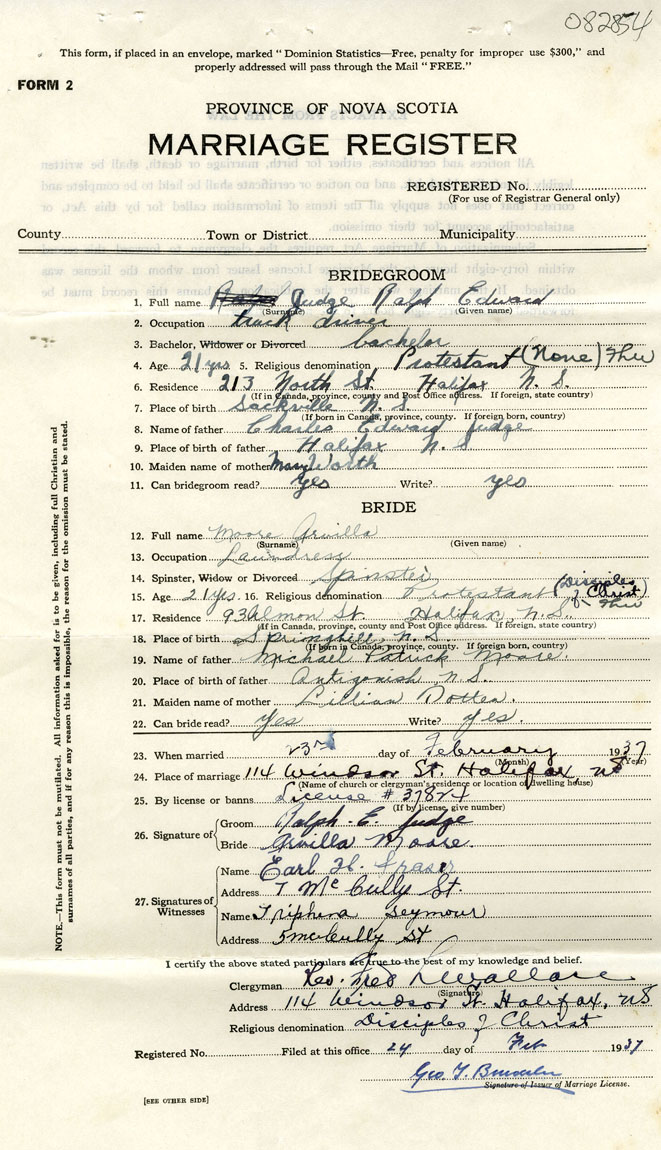 082854
This form, if placed in an envelope, marked "Dominion Statistics—Free, penalty for improper use $300," and
properly addressed will pass through the Mail "FREE."
FORM 2
PROVINCE OF NOVA SCOTIA
MARRIAGE REGISTER
REGISTERED No.
(For use of Registrar General only)
County Town or District Municipality
BRIDEGROOM
1. Full name Judge Ralph Edward
(Surname) (Given name)
2. Occupation truck driver
3. Bachelor, Widower or Divorced bachelor
4. Age 21 yrs 5. Religious denomination Protestant (None)
6. Residence 213 North St. Halifax N. S.
(If in Canada, province, county and Post Office address. If foreign, state country)
7. Place of birth Sackville N. S.
(If born in Canada, province, county. If foreign born, country)
8. Name of father Charles Edward Judge
9. Place of birth of father Halifax N S
10. Maiden name of mother Mary Worth
11. Can bridegroom read? yes Write? yes
BRIDE
12. Full name Moore Arvilla
(Surname) (Given name)
13. Occupation Laundress
14. Spinster, Widow or Divorced Spinster
15. Age 21 yrs. 16. Religious denomination Protestant (Disciples of Christ)
17. Residence 93 Almon St. Halifax, N. S.
(If in Canada, province, county and Post Office address. If foreign, state country)
18. Place of birth Springhill, N. S.
(If born in Canada, province, county. If foreign born, country)
19. Name of father Michael Patrick Moore.
20. Place of birth of father Antigonish N. S.
21. Maiden name of mother Lillian
22. Can bride read? yes Write? yes.
23. When married 23rd day of February 1937
(Month) (Year)
24. Place of marriage 114 Windsor St. Halifax, NS
(Name of church or clergyman's residence or location of dwelling house)
25. By license or banns License # 37824
(If by license, give number)
26. Signature of
Groom Ralph E Judge
Bride Arvilla Moore.
27. Signatures of Witnesses
Name Earl H. Fraser
Address 7 McCully St.
Name Triphena Seymour
Address 5 McCully St
I certify the above stated particulars are true to the best of my knowledge and belief.
Clergyman Rev. Fred Wallace
(Signature)
Address 114 Windsor St. Halifax, NS
Religious denomination Disciples of Christ
Registered No. Filed at this office 24 day of Feb 1937
Geo. T.
Signature of Issuer of Marriage License.
[SEE OTHER SIDE]
NOTE.—This form must not be mutilated. All information asked for is to be given, including full Christian and
surnames of all parties, and if for any reason this is impossible, the reason for the omission must be stated.